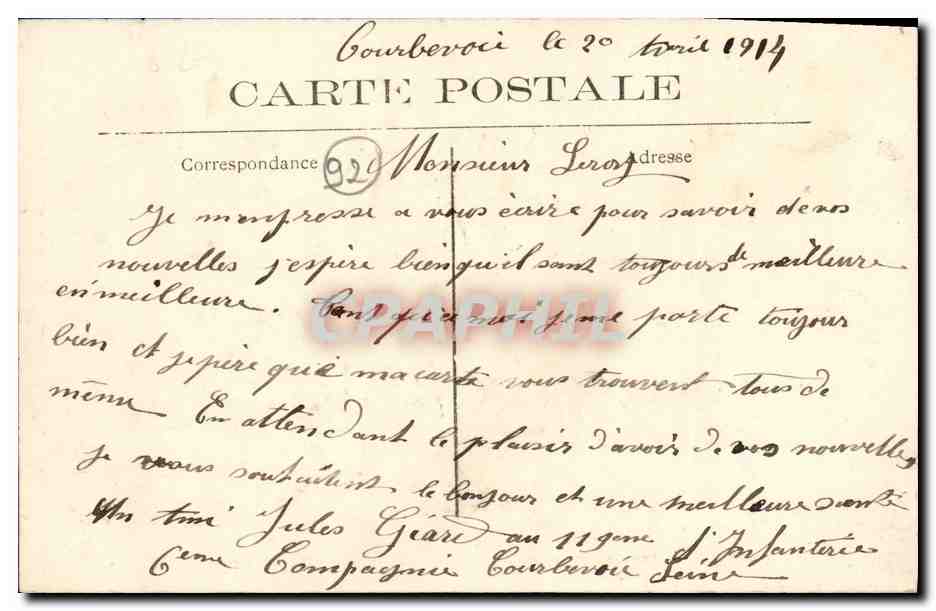 Courbevoie le 20 Avril 1914
CARTE POSTALE
Correspondance
92
Monsieur Leroy
Adresse
Je m'enpresse a vous écrire pour savoir de vos
nouvelles j'espère bien qu'il sont toujours de meilleure
en meilleure. Tant qu'a moi je me porte toujour
bien et jepère que ma carte vous trouvent tous de
même En attendant le plaisir d'avoir de vos nouvelles
je vous souhaitent le bonjour et une meilleure santé
Un ami Jules Géard au 119eme d'Infanterie
6eme Compagnie Courbevoie Seine
CPAPHIL